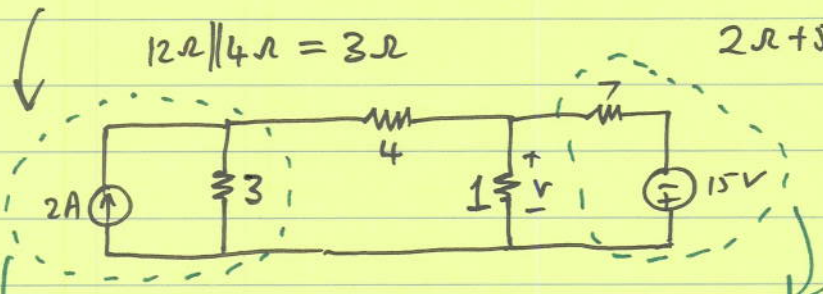 12Ω||4Ω = 3Ω
2Ω+5
7
4
2A
3
1
+
v
-
15V